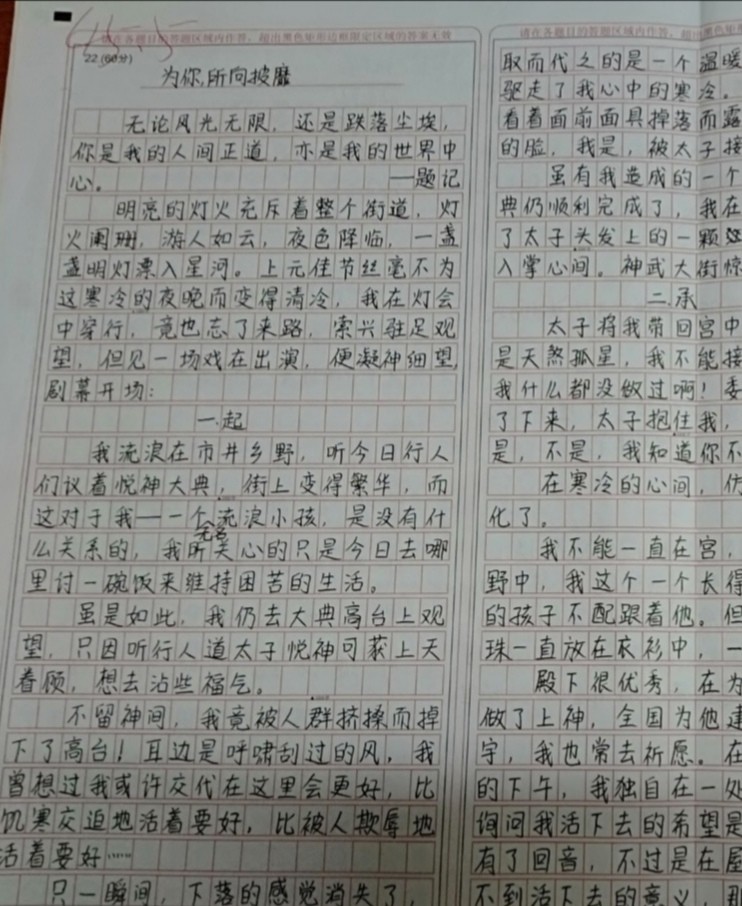 请在各题目的答题区域内作答，超出黑色矩形边框限定区域的答案无效
22.(60分)
为你,所向披靡
无论风光无限，还是跌落尘埃，
你是我的人间正道，亦是我的世界中
心。 ——题记
明亮的灯火充斥着整个街道，灯
火阑珊，游人如云，夜色降临，一盏
盏明灯漂入星河。上元佳节丝毫不为
这寒冷的夜晚而变得清冷，我在灯会
中穿行，竟也忘了来路，索兴驻足观
望，但见一场戏在出演，便凝神细望，
剧幕开场：
一.起
我流浪在市井乡野，听今日行人
们议着悦神大典，街上变得繁华，而
这对于我——一个无名流浪小孩，是没有什
么关系的，我所关心的只是今日去哪
里讨一碗饭来维持困苦的生活。
虽是如此，我仍去大典高台上观
望，只因听行人道太子悦神可获上天
眷顾，想去沾些福气。
不留神间，我竟被人群挤搡而掉
下了高台！耳边是呼啸刮过的风，我
曾想过我或许交代在这里会更好，比
饥寒交迫地活着要好，比被人欺辱地
活着要好……
只一瞬间，下落的感觉消失了，
请在各题目的答题区域内作答，超出黑色矩形
取而代之的是一个温暖
驱走了我心中的寒冷。
看着面前面具掉落而露
的脸，我是，被太子接
虽有我造成的一个
典仍顺利完成了，我在
了太子头发上的一颗
入掌心间。神武大街惊
二.承
太子将我带回宫中
是天煞孤星，我不能接
我什么都没做过啊！委
了下来，太子抱住我，
是，不是，我知道你不
在寒冷的心间，仿
化了。
我不能一直在宫，
野中，我这个一个长得
的孩子不配跟着他。但
珠一直放在衣衫中，一
殿下很优秀，在为
做了上神，全国为他建
宇，我也常去祈愿。在
的下午，我独自在一处
询问我活下去的希望是
有了回音，不过是在屋
不到活下去的意义，那